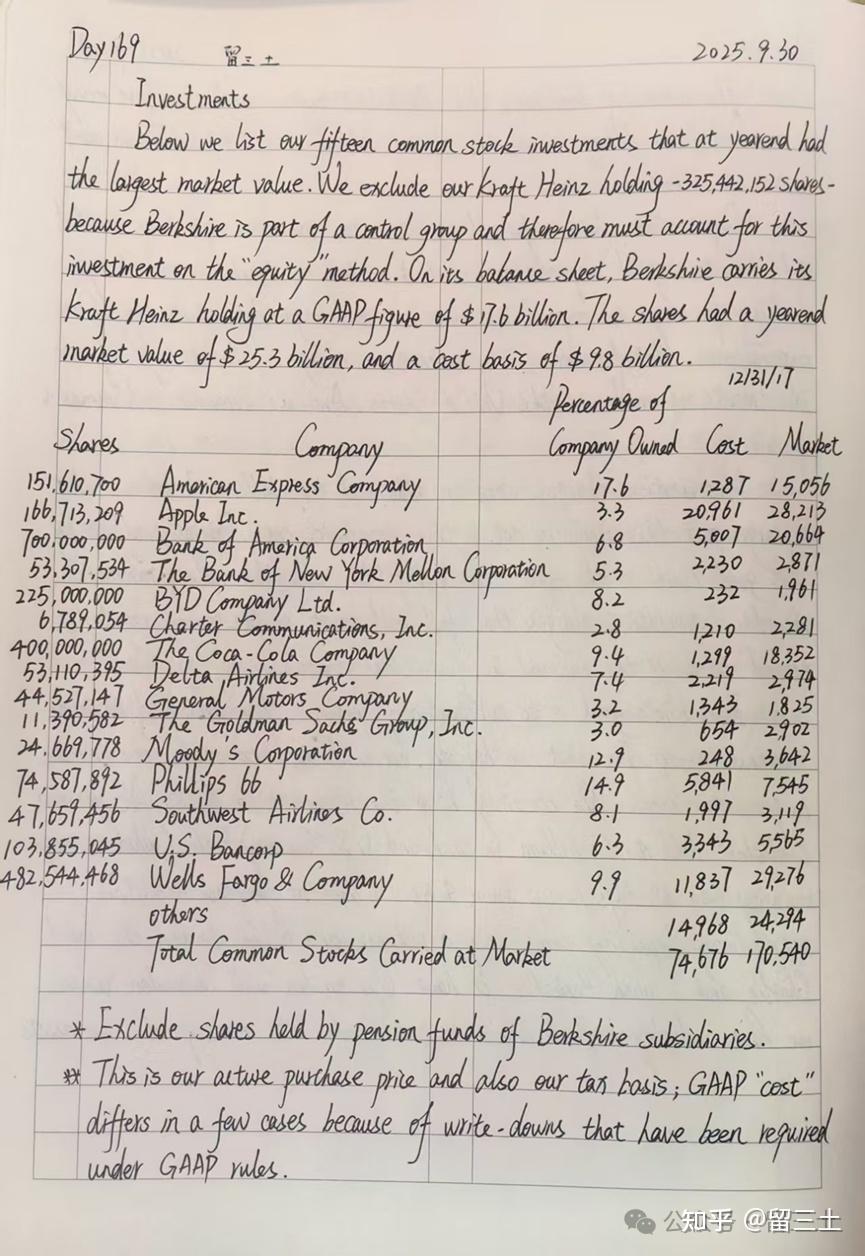 Day 169 留三土 2025.9.30
Investments
Below we list our fifteen common stock investments that at yearend had
the largest market value. We exclude our Kraft Heinz holding -325,442,152 shares-
because Berkshire is part of a control group and therefore must account for this
investment on the "equity" method. On its balance sheet, Berkshire carries its
Kraft Heinz holding at a GAAP figure of $17.6 billion. The shares had a yearend
market value of $25.3 billion, and a cost basis of $9.8 billion.
12/31/17
Percentage of
Shares Company Company Owned Cost Market
151,610,700 American Express Company 17.6 1,287 15,056
166,713,209 Apple Inc. 3.3 20,961 28,213
700,000,000 Bank of America Corporation 6.8 5,007 20,664
53,307,534 The Bank of New York Mellon Corporation 5.3 2,230 2,871
225,000,000 BYD Company Ltd. 8.2 232 1,961
6,789,054 Charter Communications, Inc. 2.8 1,210 2,281
400,000,000 The Coca-Cola Company 9.4 1,299 18,352
53,110,395 Delta Airlines Inc. 7.4 2,219 2,974
44,527,147 General Motors Company 3.2 1,343 1,825
11,390,582 The Goldman Sachs Group, Inc. 3.0 654 2,902
24,669,778 Moody's Corporation 12.9 248 3,642
74,587,892 Phillips 66 14.9 5,841 7,545
47,659,456 Southwest Airlines Co. 8.1 1,997 3,119
103,855,045 U.S. Bancorp 6.3 3,343 5,565
482,544,468 Wells Fargo & Company 9.9 11,837 29,276
others 14,968 24,294
Total Common Stocks Carried at Market 74,676 170,540
* Exclude shares held by pension funds of Berkshire subsidiaries.
** This is our acture purchase price and also our tax basis; GAAP "cost"
differs in a few cases because of write-downs that have been required
under GAAP rules.
知乎 @留三土